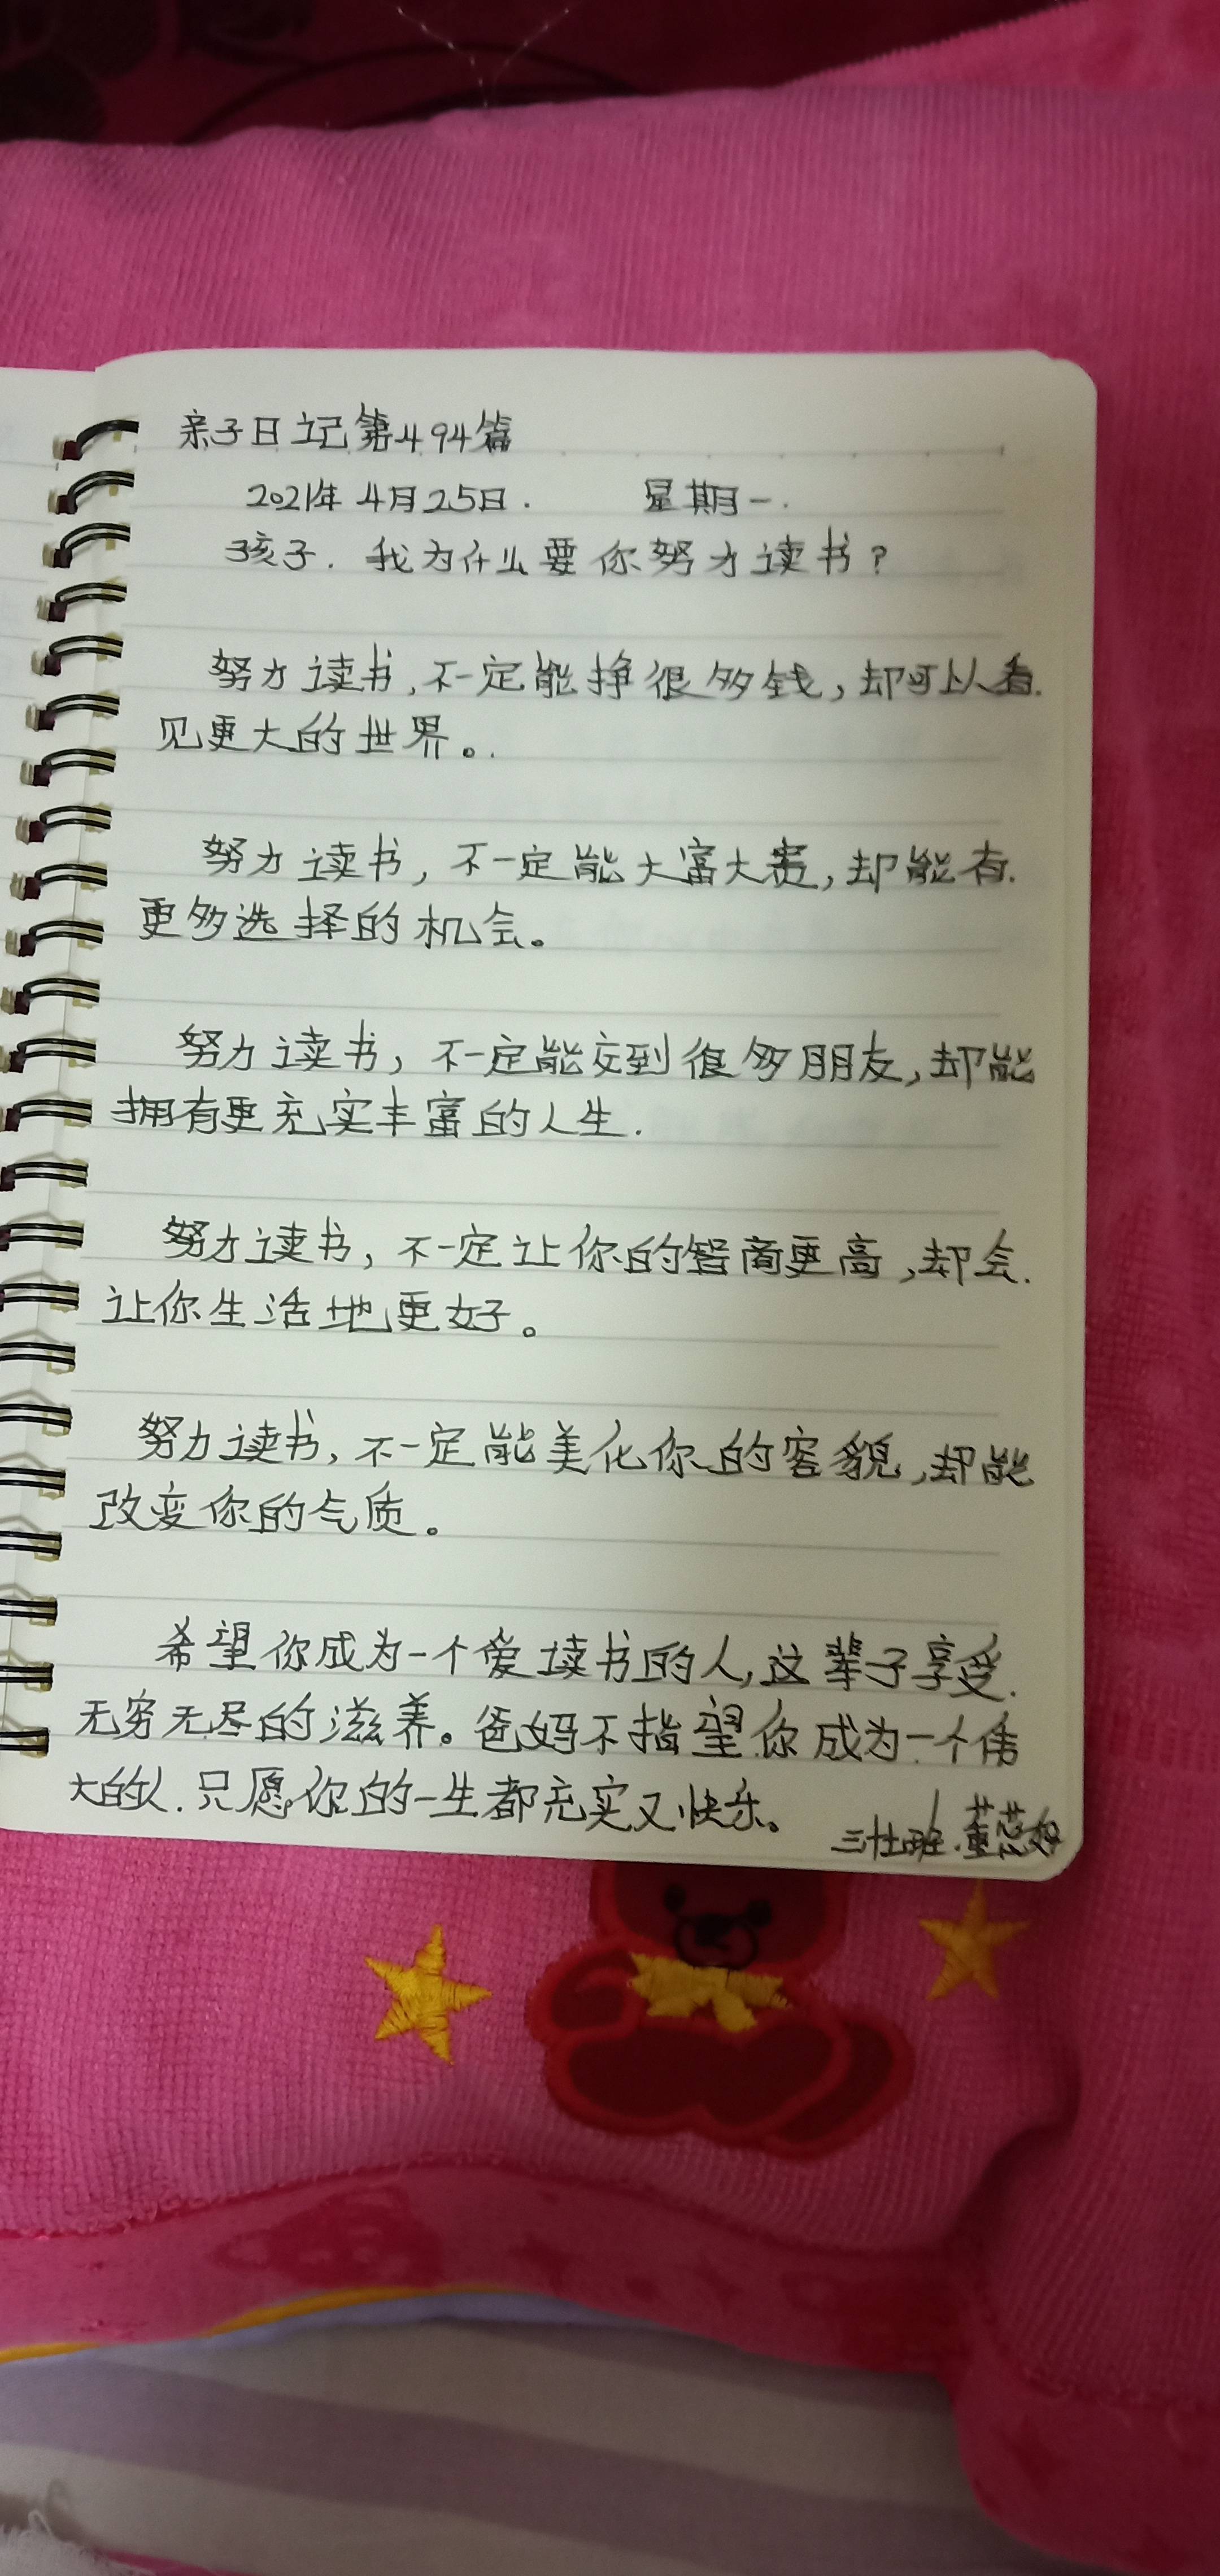 亲子日记第494篇
2021年4月25日. 星期一.
孩子.我为什么要你努力读书?
努力读书,不一定能挣很多钱,却可以看.
见更大的世界。.
努力读书,不一定能大富大贵,却能有.
更多选择的机会。
努力读书,不一定能交到很多朋友,却能
拥有更充实丰富的人生.
努力读书,不一定让你的智商更高,却会.
让你生活地更好。
努力读书,不一定能美化你的容貌,却能
改变你的气质。
希望你成为一个爱读书的人,这辈子享受.
无穷无尽的滋养。爸妈不指望你成为一个伟
大的人.只愿你的一生都充实又快乐。
董蕊